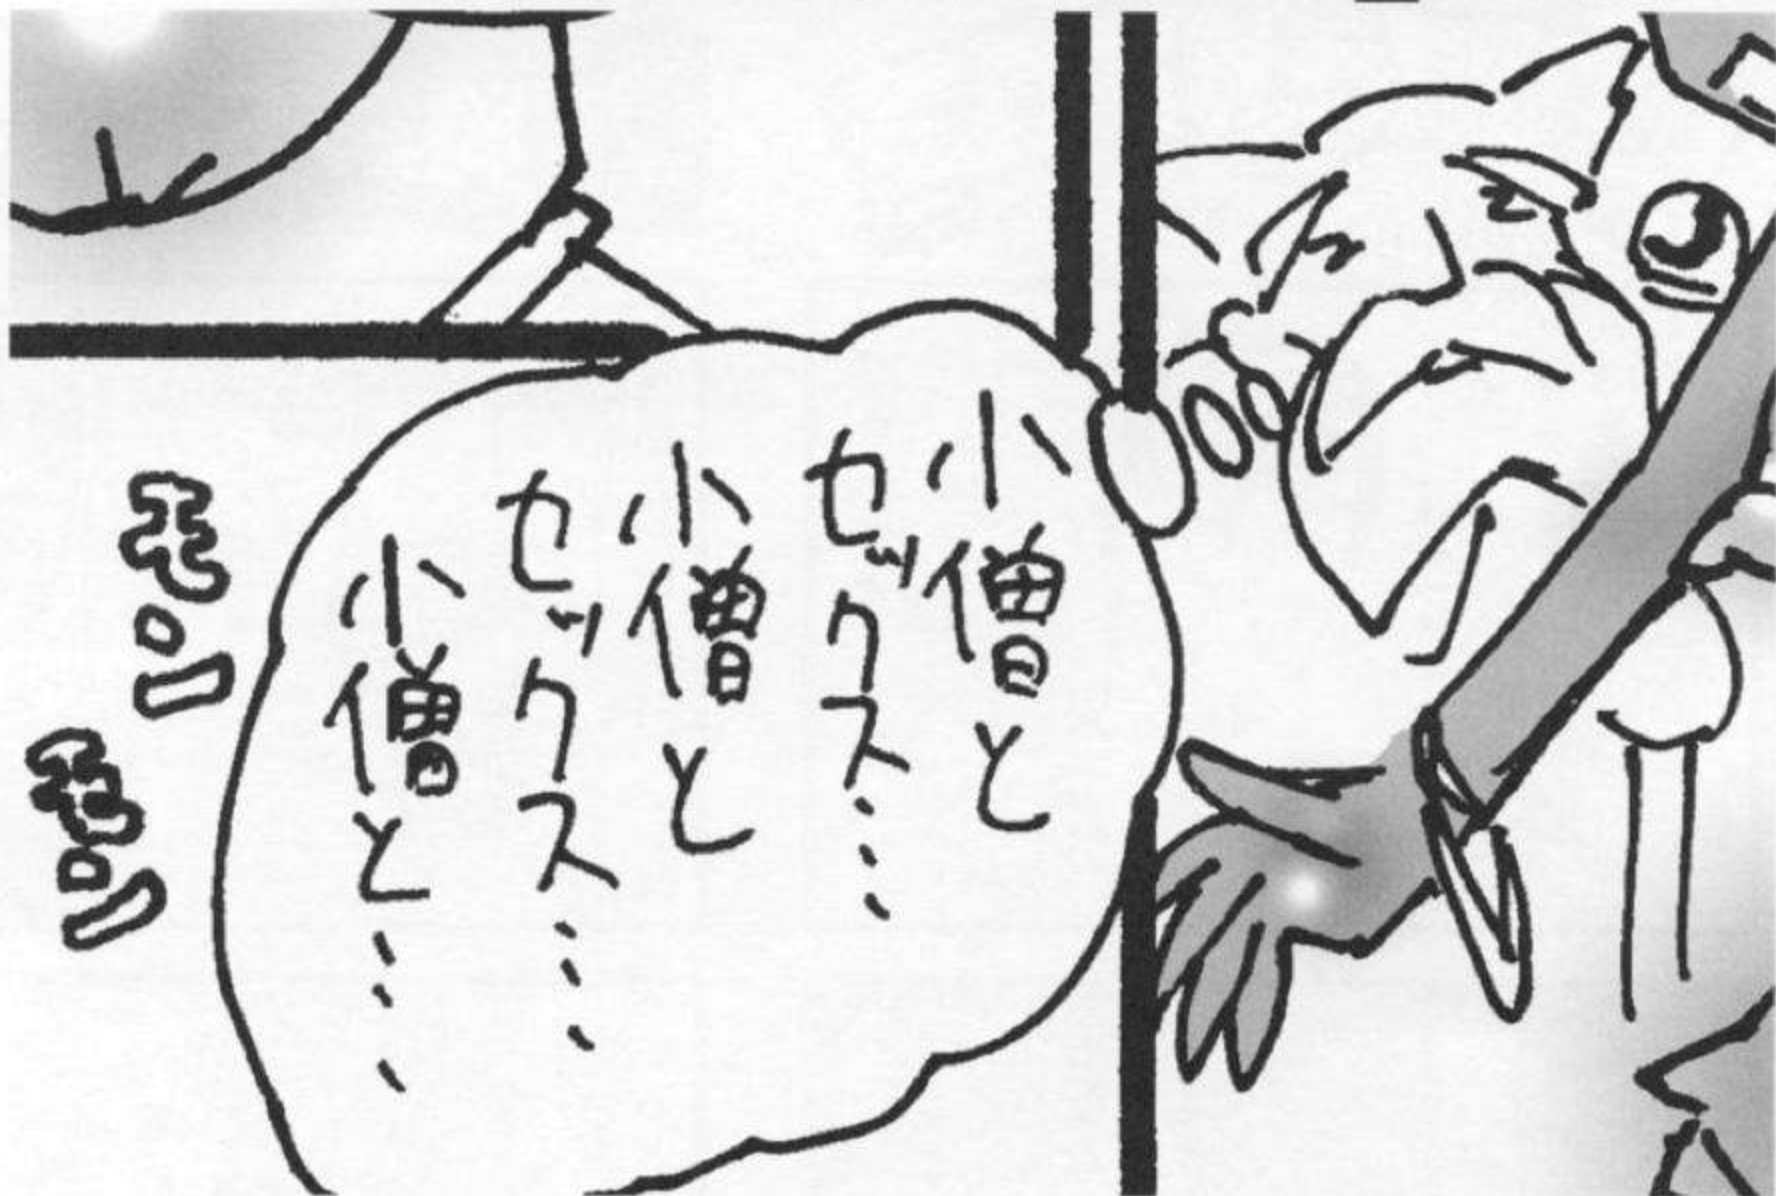 小僧と
セックス…
小僧と
セックス…
小僧と……
モンモン